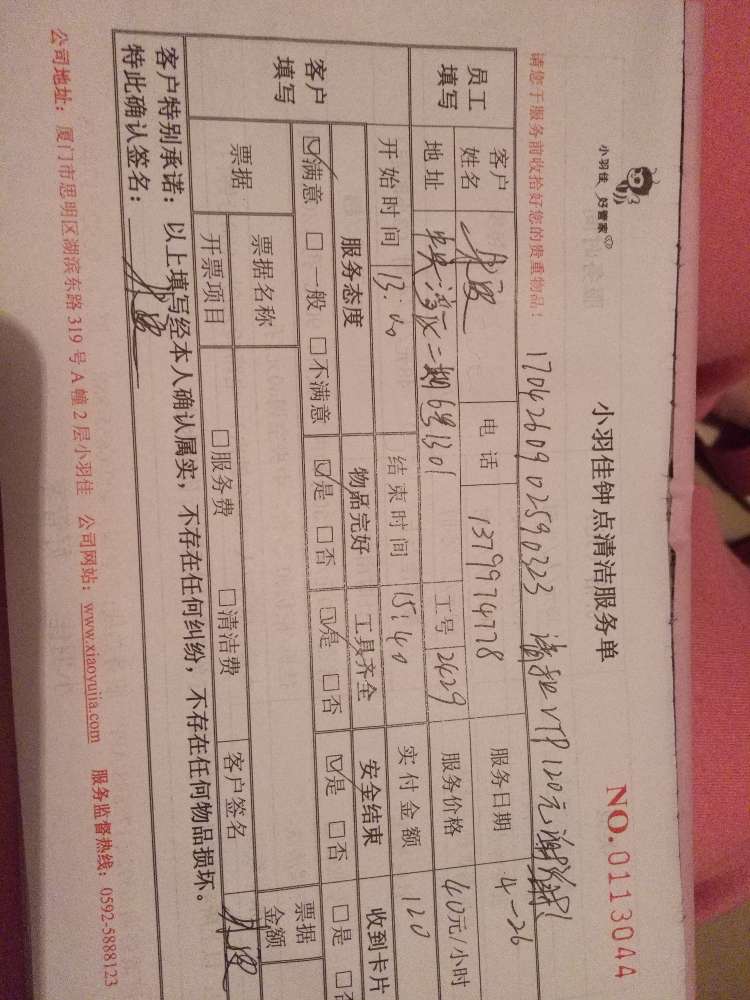 小羽佳 好管家
小羽佳钟点清洁服务单
NO.0113044
请您于服务前收拾好您的贵重物品!
17042609 02590323 VTP 120元 谢谢!
员工填写
客户姓名
电话 13799974778
服务日期 4-26
地址 中央湾区二期6号1301
工号 2429
服务价格 40元/小时
开始时间 13:40
结束时间 15:40
实付金额 120
客户填写
服务态度
物品完好
工具齐全
安全结束
收到卡片
☑满意 □一般 □不满意
☑是 □否
☑是 □否
☑是 □否
□是
票据
票据名称
票据金额
开票项目
□服务费 □清洁费
客户签名
客户特别承诺:以上填写经本人确认属实,不存在任何纠纷,不存在任何物品损坏。
特此确认签名:
公司地址:厦门市思明区湖滨东路319号A幢2层小羽佳 公司网站:www.xiaoyujia.com 服务监督热线:0592-5888123